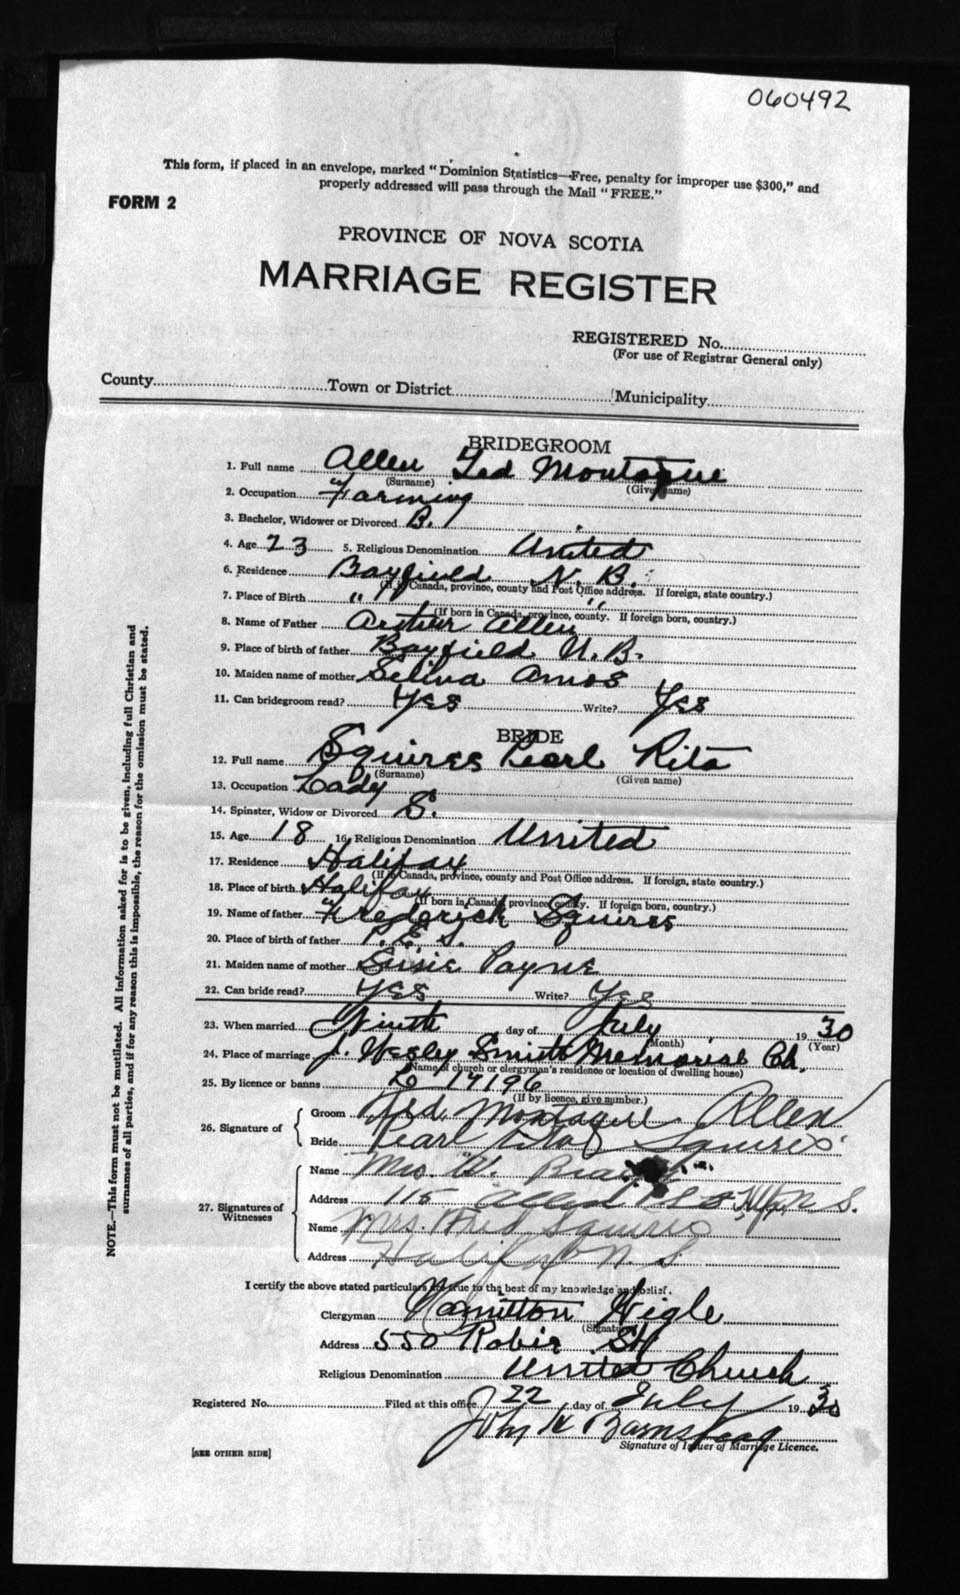 060492
This form, if placed in an envelope, marked "Dominion Statistics—Free, penalty for improper use $300," and
properly addressed will pass through the Mail "FREE."
FORM 2
PROVINCE OF NOVA SCOTIA
MARRIAGE REGISTER
REGISTERED No.
(For use of Registrar General only)
County Town or District Municipality
BRIDEGROOM
1. Full name Allen Ted Montague
(Surname) (Given name)
2. Occupation Farming
3. Bachelor, Widower or Divorced B.
4. Age 23 5. Religious Denomination United
6. Residence Bayfield N. B.
(If in Canada, province, county and Post Office address. If foreign, state country.)
7. Place of Birth " "
(If born in Canada, province, county. If foreign born, country.)
8. Name of Father Arthur Allen
9. Place of birth of father Bayfield N. B.
10. Maiden name of mother Selina Amos
11. Can bridegroom read? Yes Write? Yes
BRIDE
12. Full name Squires Pearl Rita
(Surname) (Given name)
13. Occupation Lady
14. Spinster, Widow or Divorced S.
15. Age 18 16. Religious Denomination United
17. Residence Halifax
(If in Canada, province, county and Post Office address. If foreign, state country.)
18. Place of birth Halifax
(If born in Canada, province, county. If foreign born, country.)
19. Name of father Frederick Squires
20. Place of birth of father
21. Maiden name of mother Susie Payne
22. Can bride read? Yes Write? Yes
23. When married Ninth day of July 1930
(Month) (Year)
24. Place of marriage J. Wesley Smith Memorial Ch.
(Name of church or clergyman's residence or location of dwelling house)
25. By licence or banns L 14196
(If by licence, give number.)
26. Signature of Groom Ted Montague Allen
Bride Pearl Rita Squires
27. Signatures of Witnesses
Name Mrs. W.
Address 115 Allen St N.S.
Name Mrs. Fred Squires
Address Halifax N. S.
I certify the above stated particulars are true to the best of my knowledge and belief.
Clergyman Hamilton Wigle
(Signature)
Address 550 Robie St
Religious Denomination United Church
Registered No. Filed at this office 22 day of July 1930
John H Barnstead
Signature of Issuer of Marriage Licence.
[SEE OTHER SIDE]
NOTE.—This form must not be mutilated. All information asked for is to be given, including full Christian and
surnames of all parties, and if for any reason this is impossible, the reason for the omission must be stated.